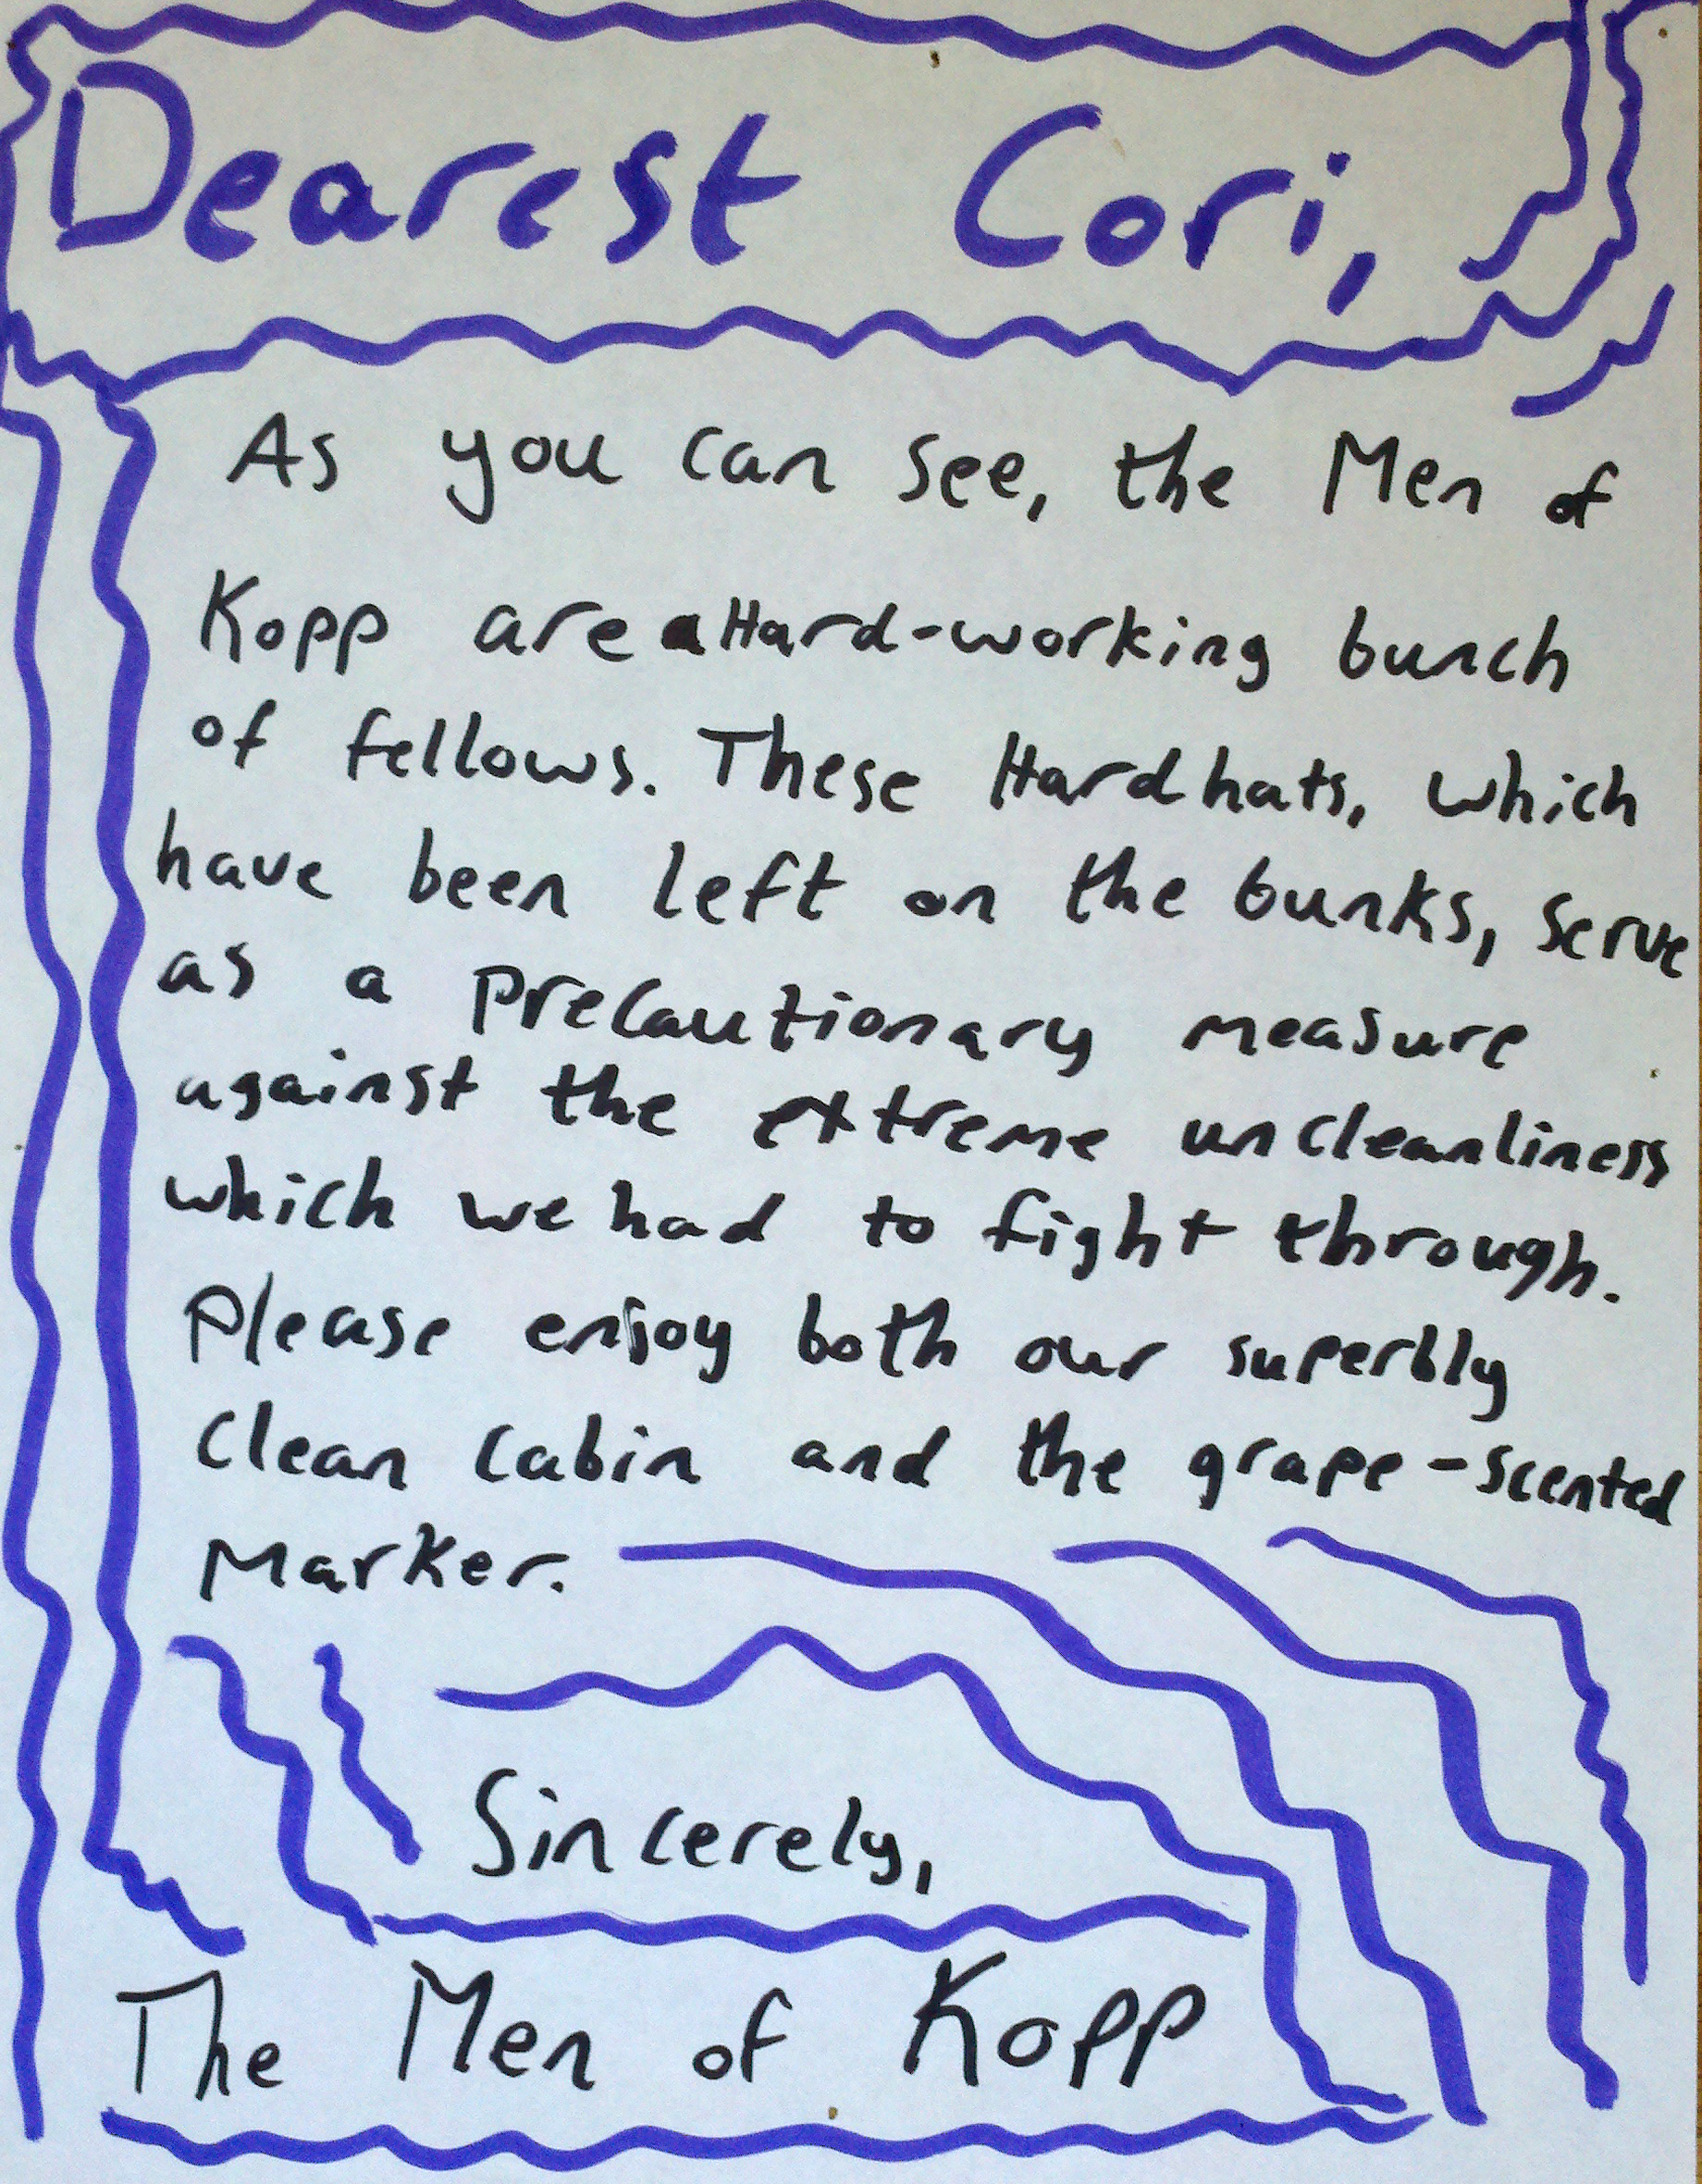 Dearest Cori,
As you can see, the Men of
Kopp are a Hard-working bunch
of fellows. These Hardhats, which
have been left on the bunks, serve
as a precautionary measure
against the extreme uncleanliness
which we had to fight through.
Please enjoy both our superbly
clean cabin and the grape-scented
Marker.
Sincerely,
The Men of Kopp